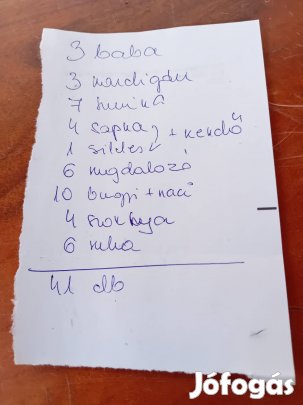 3 baba
3 kardigán
7 tunika
4 sapka, + kendő
1 sildes
6 rugdalozó
10 bugyi + naci
4 szoknya
6 ruha
41 db
Jófogás